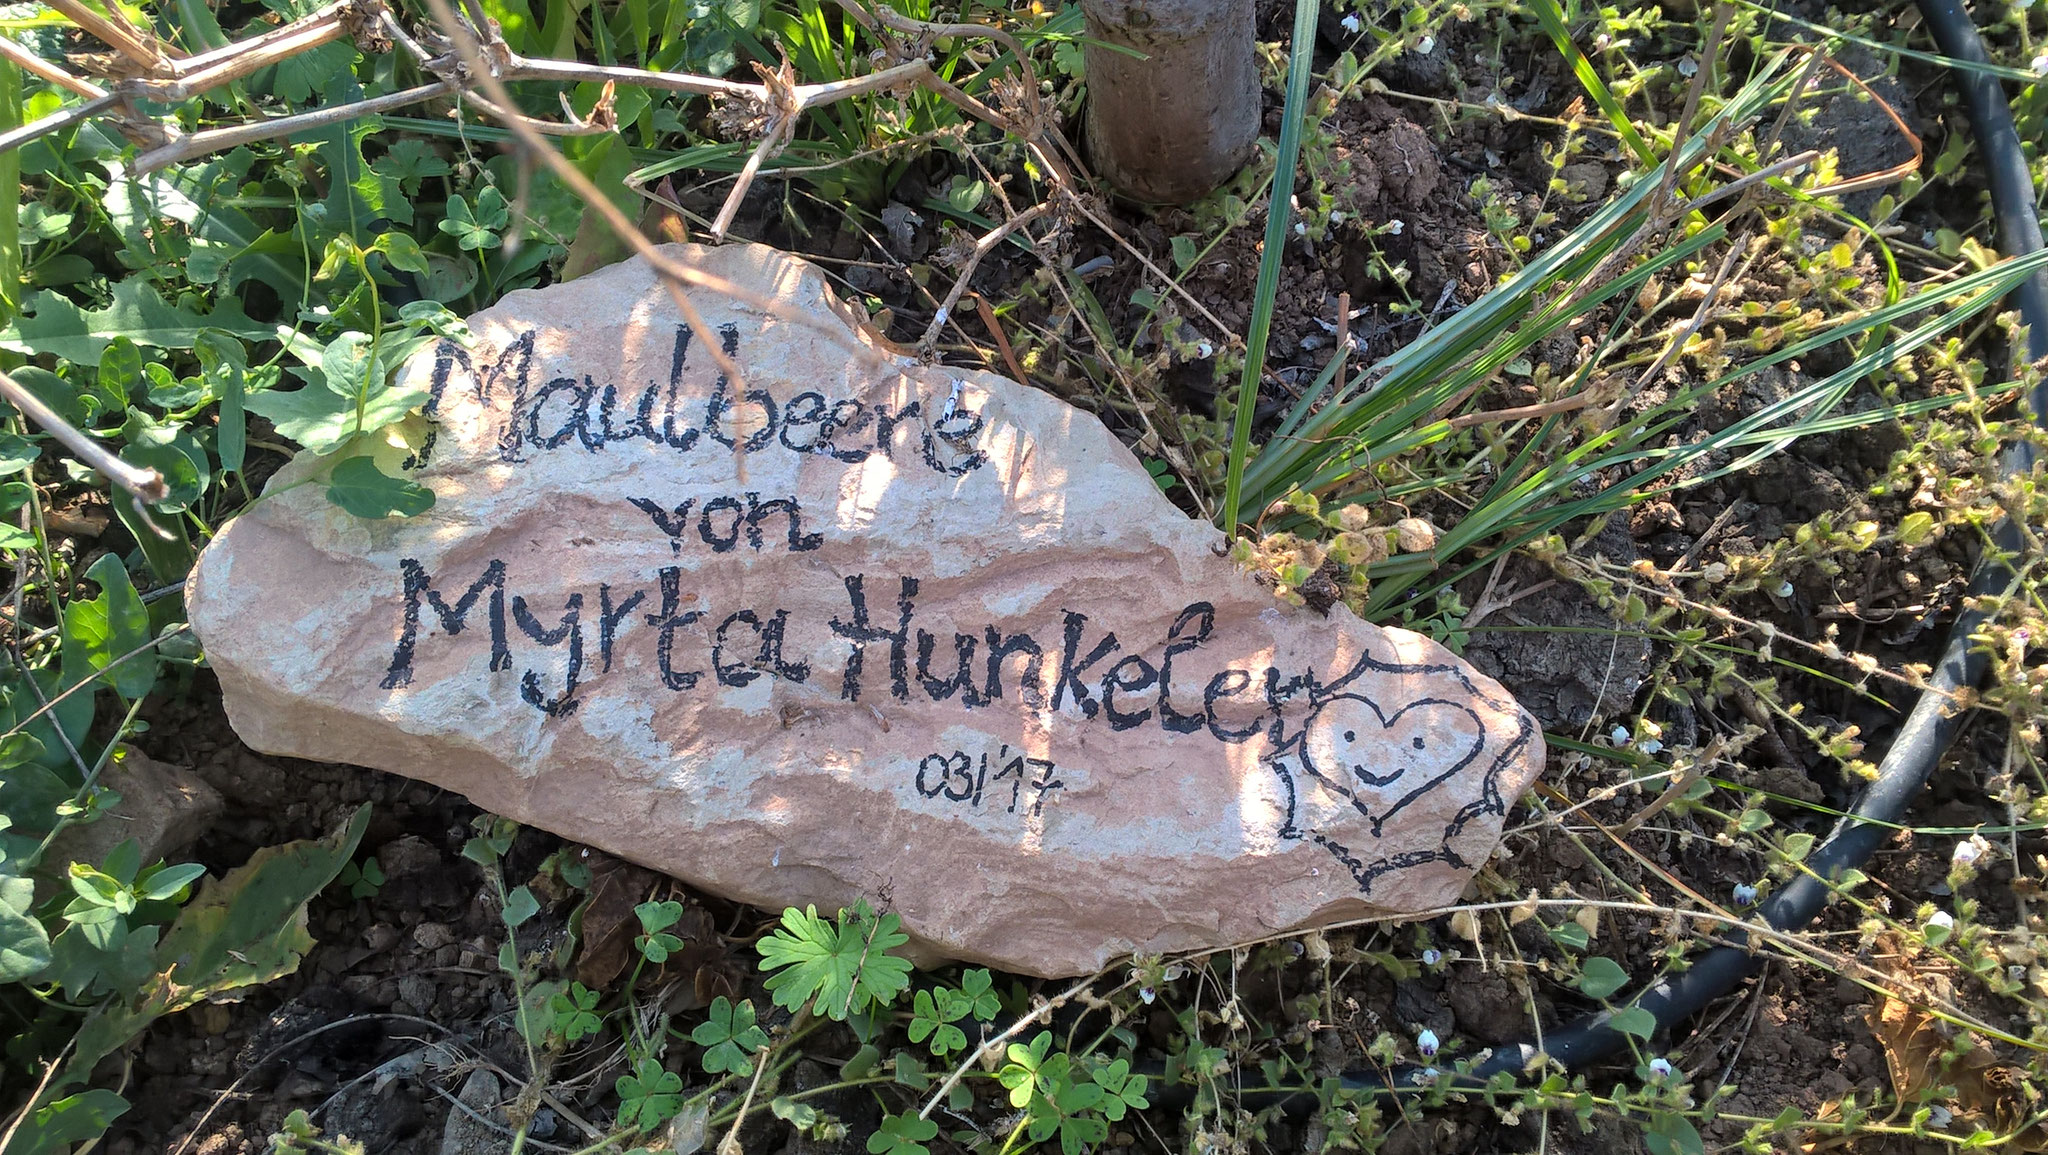 Maulbeere
von
Myrta Hunkeler
03/'17